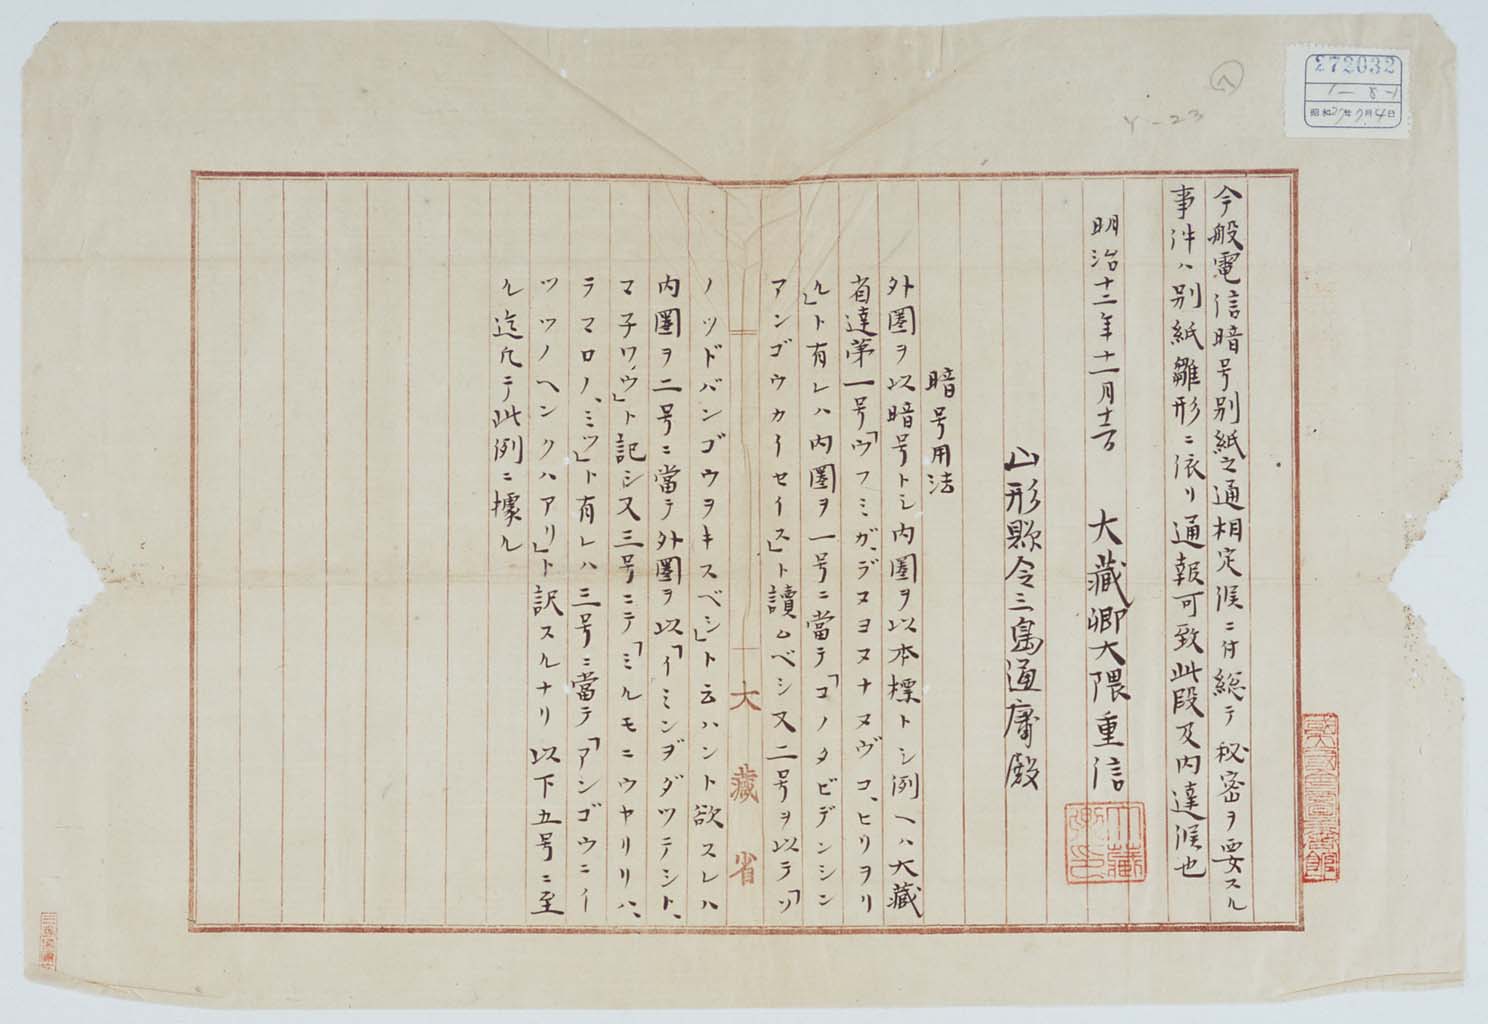 今般電信暗号別紙之通相定候ニ付総テ秘密ヲ要スル
事件ハ別紙雛形ニ依リ通報可致此段及内達候也
明治十二年十二月 大藏卿大隈重信
山形縣令三島通庸殿
暗号用法
外圏ヲ以暗号トシ内圏ヲ以本標トシ例ヘハ大藏
省達第一号「ウフミガ、デヌヨヌナヌヴコ、ヒリヲリ
ル」ト有レハ内圏ヲ一号ニ當テ「コノタビデンシン
アンゴウカイセイス」ト讀ムベシ又二号ヲ以テ「ソ
ノツドバンゴウヲキスベシ」ト云ハント欲スレハ
内圏ヲ二号ニ當テ外圏ヲ以「イミンヂダツテシト、
マ子ワ、ウ」ト記シ又三号ニテ「ミルモニウヤリリハ、
ラマロノ、ミツ」ト有レハ三号ニ當テ「アンゴウニイ
ツツノヘンクハアリ」ト訳スルナリ以下五号ニ至
ル迄凡テ此例ニ據ル
大藏省
大藏卿印
272032
昭和27年7月4日
Y-23